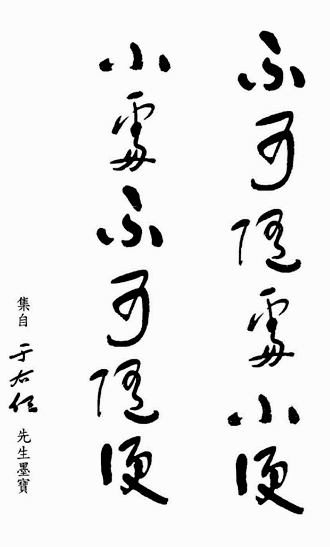 不可随處小便
小處不可随便
集自于右任先生墨寶